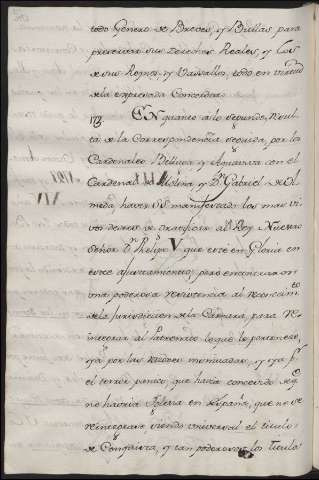 todo Genero de Breves, y Bullas para
preservar sus Derechos Reales, y los
de sus Reynos, y Vasallos, todo en virtud
de la expresada Concordia.
En quanto a lo segundo, resul
ta de la Correspondencia seguida, por los
Cardenales Belluga y Aquaviva con el
Cardenal de Molina y Dn. Gabriel de Ol
meda, haver SS. manifestado los mas vi
vos deseos de gratificar al Rey Nuestro
Señor Dn. Phelipe V que esté en Gloria en
este ajustamiento, pero encontraron
una poderosa resistencia al reconocim.to
de la jurisdiccion de la Camara, para re
integrar al Patronato lo que le pertenece,
ya por las razones insinuadas, y ya p.r
el terror panico, que havia concevido de q.e
no havria Iglesia en España, que no se
reintegrase siendo universal el titulo
de Conquista, y tan poderosos los titulos